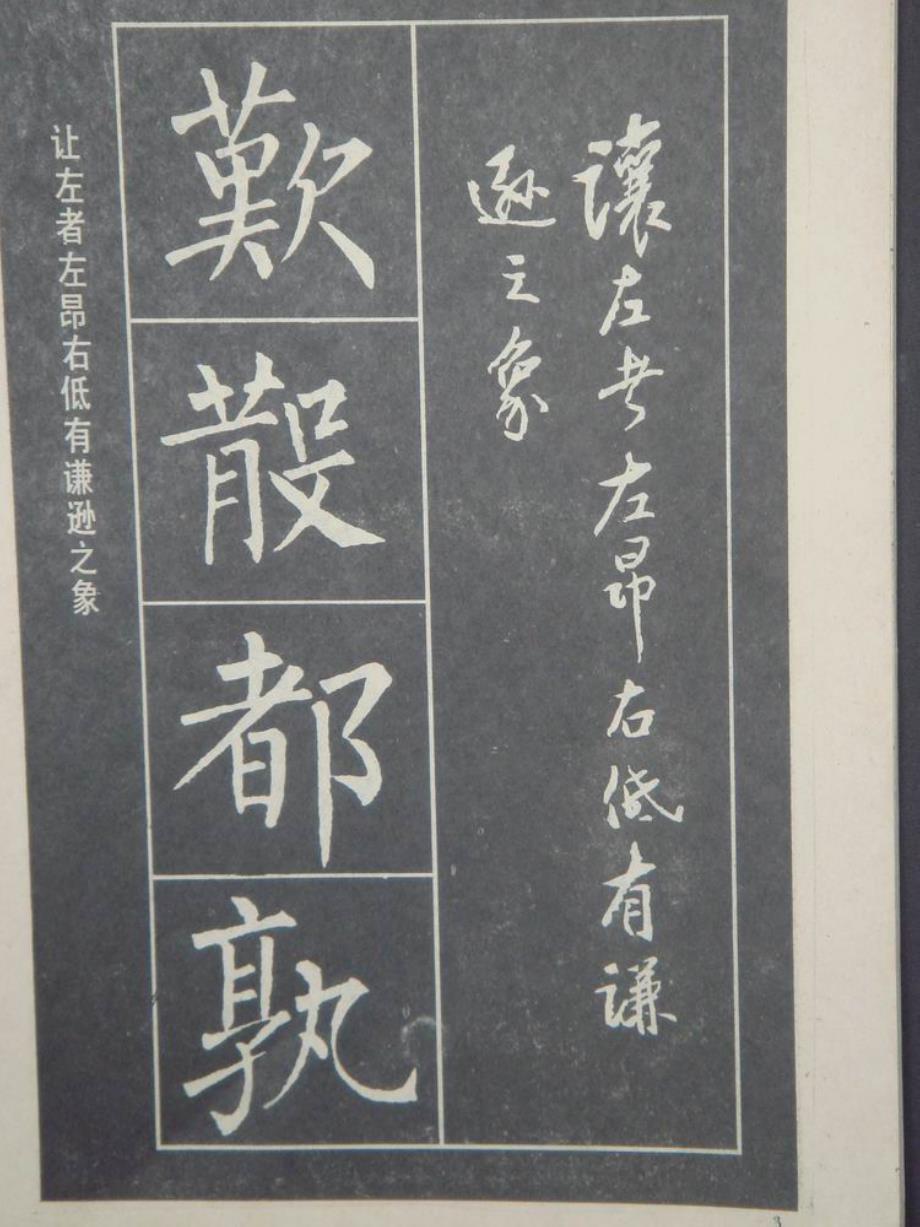 讓左者左昂右低有謙
遜之象
歎
殽
都
孰
让左者左昂右低有谦逊之象
3